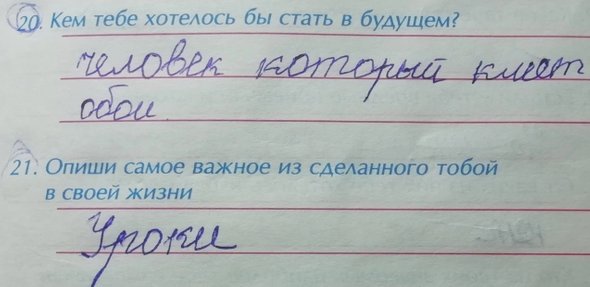 20. Кем тебе хотелось бы стать в будущем?
человек который клеет
обои
21. Опиши самое важное из сделанного тобой
в своей жизни
Уроки